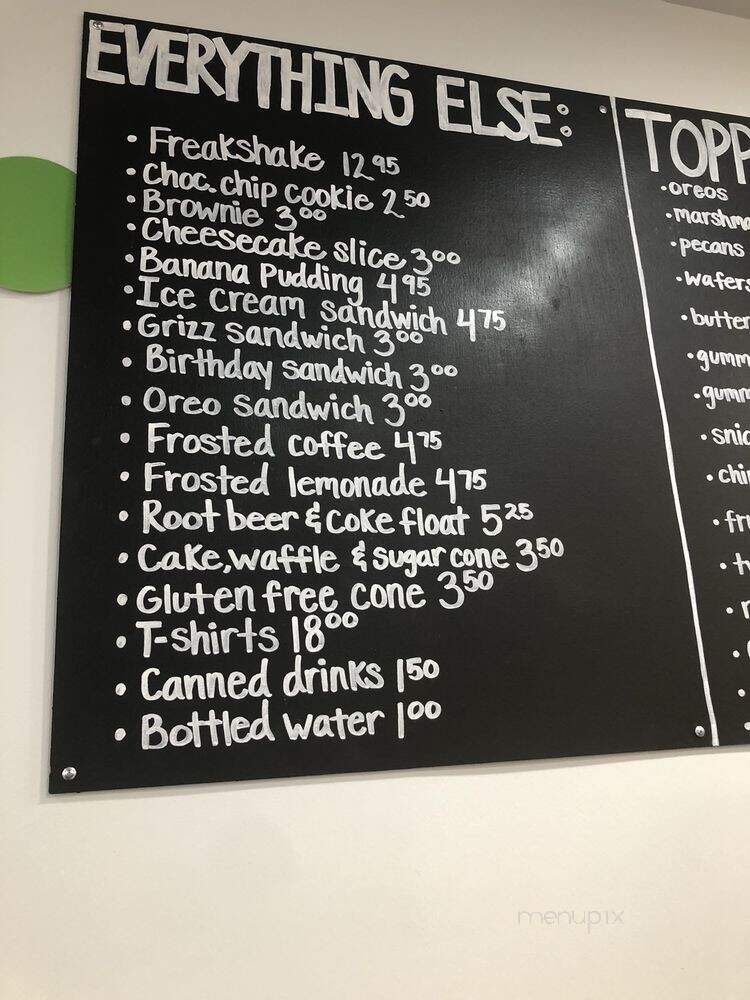 EVERYTHING ELSE:
• Freakshake 12.95
• Choc. chip cookie 2.50
• Brownie 3.00
• Cheesecake slice 3.00
• Banana Pudding 4.95
• Ice cream sandwich 4.75
• Grizz sandwich 3.00
• Birthday sandwich 3.00
• Oreo sandwich 3.00
• Frosted coffee 4.75
• Frosted lemonade 4.75
• Root beer & coke float 5.25
• Cake, waffle & sugar cone 3.50
• Gluten free cone 3.50
• T-shirts 18.00
• Canned drinks 1.50
• Bottled water 1.00
TOPP
• oreos
• marshma
• pecans
• wafers
• butter
• gumm
• gumm
• snic
• chi
• fr
menupix